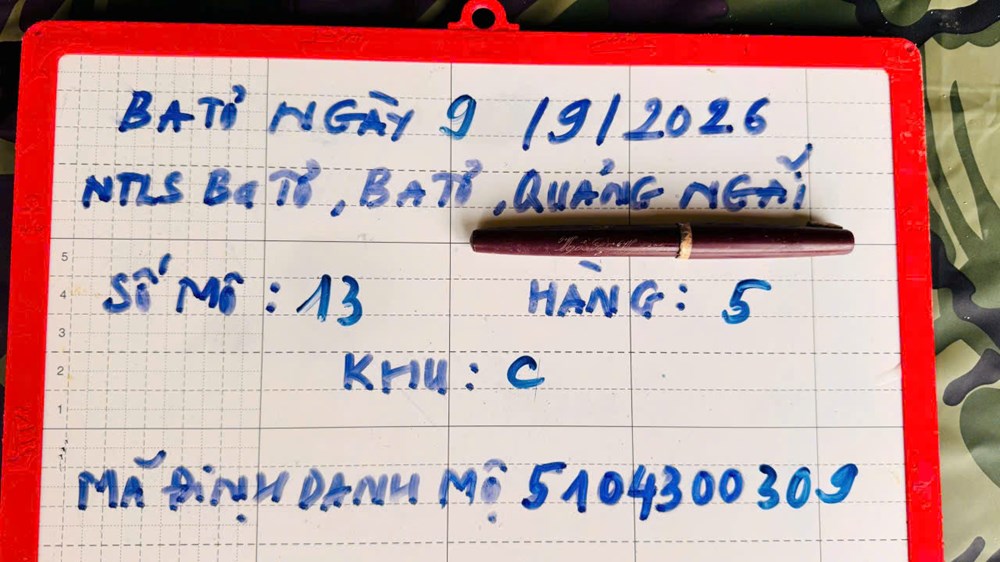 BA TƠ NGÀY 9 /9/2026
NTLS BA TƠ, BA TƠ, QUẢNG NGÃI
5
SỐ MỘ: 13 HÀNG: 5
4
3
KHU: C
2
1
MÃ ĐỊNH DANH MỘ 5104300309